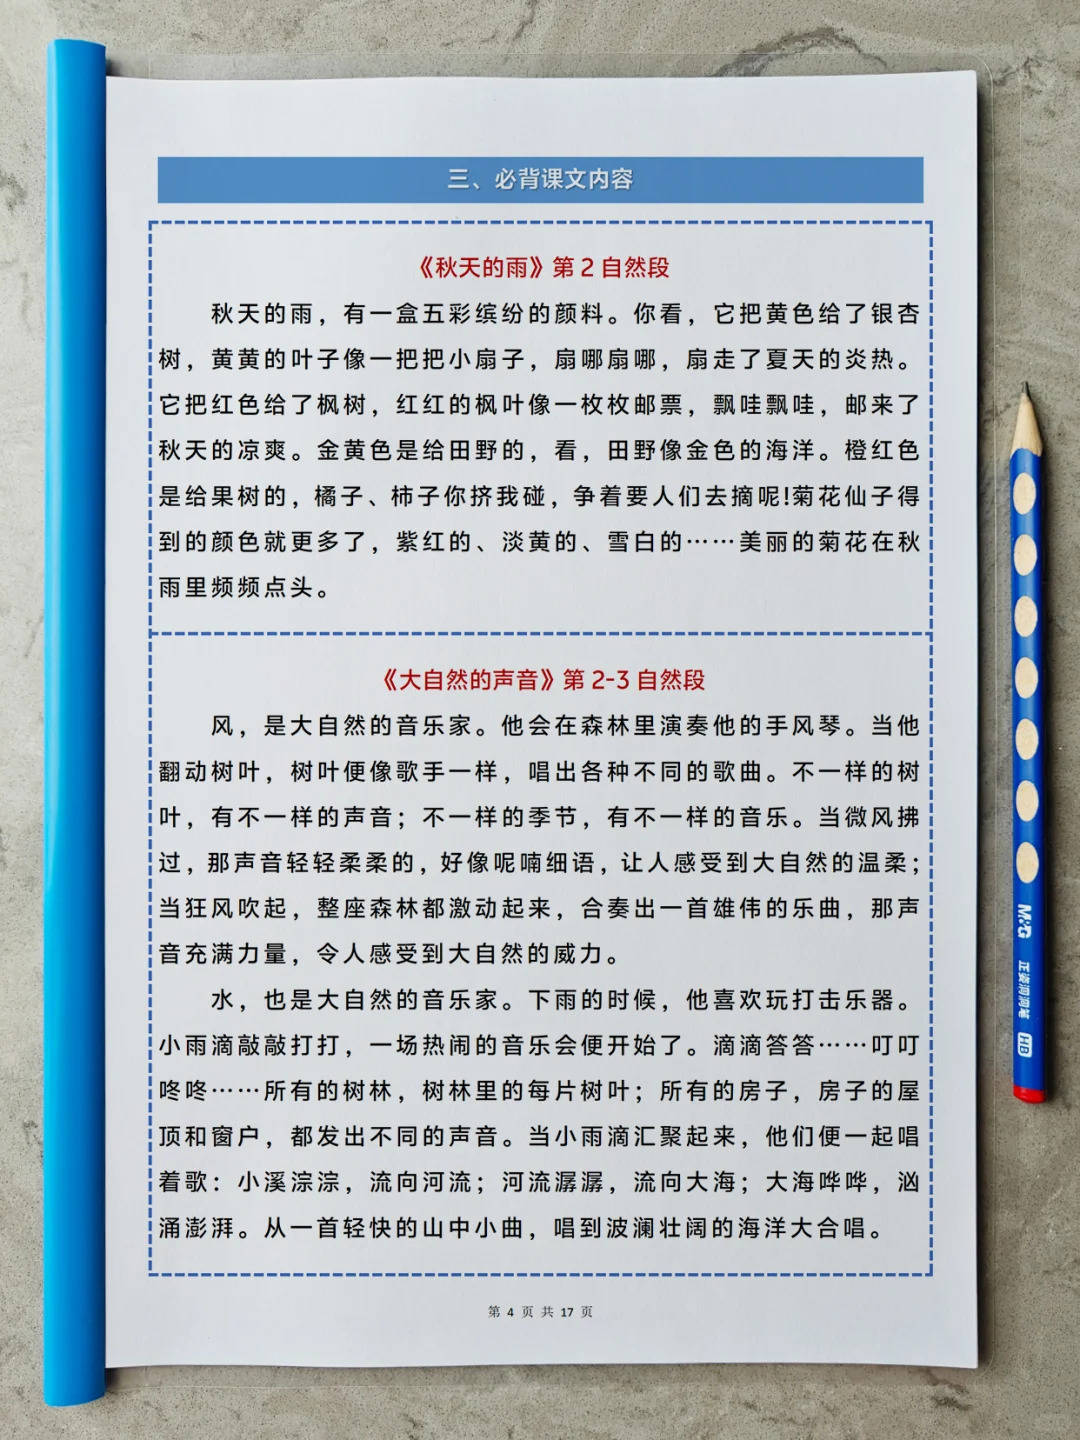 三、必背课文内容
《秋天的雨》第 2 自然段
秋天的雨，有一盒五彩缤纷的颜料。你看，它把黄色给了银杏
树，黄黄的叶子像一把把小扇子，扇哪扇哪，扇走了夏天的炎热。
它把红色给了枫树，红红的枫叶像一枚枚邮票，飘哇飘哇，邮来了
秋天的凉爽。金黄色是给田野的，看，田野像金色的海洋。橙红色
是给果树的，橘子、柿子你挤我碰，争着要人们去摘呢!菊花仙子得
到的颜色就更多了，紫红的、淡黄的、雪白的……美丽的菊花在秋
雨里频频点头。
《大自然的声音》第 2-3 自然段
风，是大自然的音乐家。他会在森林里演奏他的手风琴。当他
翻动树叶，树叶便像歌手一样，唱出各种不同的歌曲。不一样的树
叶，有不一样的声音；不一样的季节，有不一样的音乐。当微风拂
过，那声音轻轻柔柔的，好像呢喃细语，让人感受到大自然的温柔；
当狂风吹起，整座森林都激动起来，合奏出一首雄伟的乐曲，那声
音充满力量，令人感受到大自然的威力。
水，也是大自然的音乐家。下雨的时候，他喜欢玩打击乐器。
小雨滴敲敲打打，一场热闹的音乐会便开始了。滴滴答答……叮叮
咚咚……所有的树林，树林里的每片树叶；所有的房子，房子的屋
顶和窗户，都发出不同的声音。当小雨滴汇聚起来，他们便一起唱
着歌：小溪淙淙，流向河流；河流潺潺，流向大海；大海哗哗，汹
涌澎湃。从一首轻快的山中小曲，唱到波澜壮阔的海洋大合唱。
第 4 页 共 17 页
M&G 正姿洞洞笔 HB